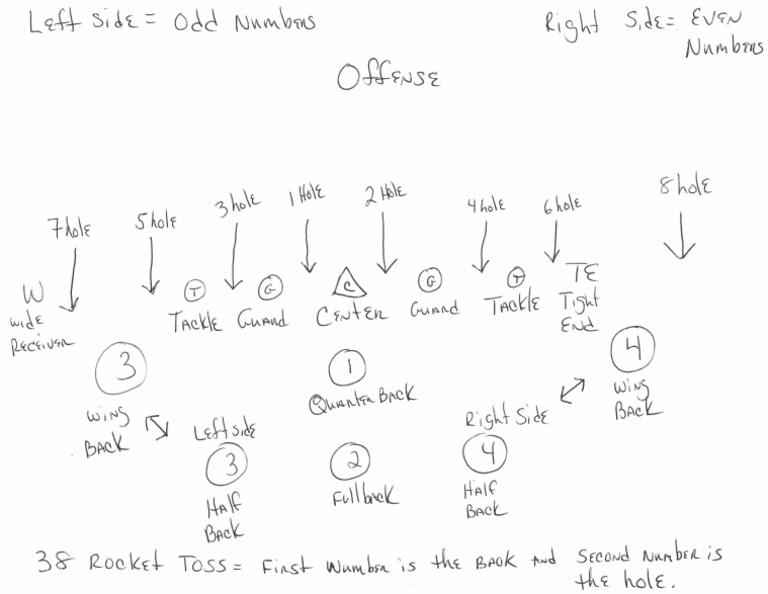 Left Side = Odd Numbers
Right Side = Even
Numbers
Offense
7 hole
5 hole
3 hole
1 Hole
2 Hole
4 hole
6 hole
8 hole
W
Wide
Receiver
T
Tackle
G
Guard
C
Center
G
Guard
T
Tackle
TE
Tight
End
3
Wing
Back
1
Quarter Back
4
Wing
Back
Left Side
3
Half
Back
2
Fullback
Right Side
4
Half
Back
38 Rocket Toss = First Number is the Back and Second Number is
the hole.